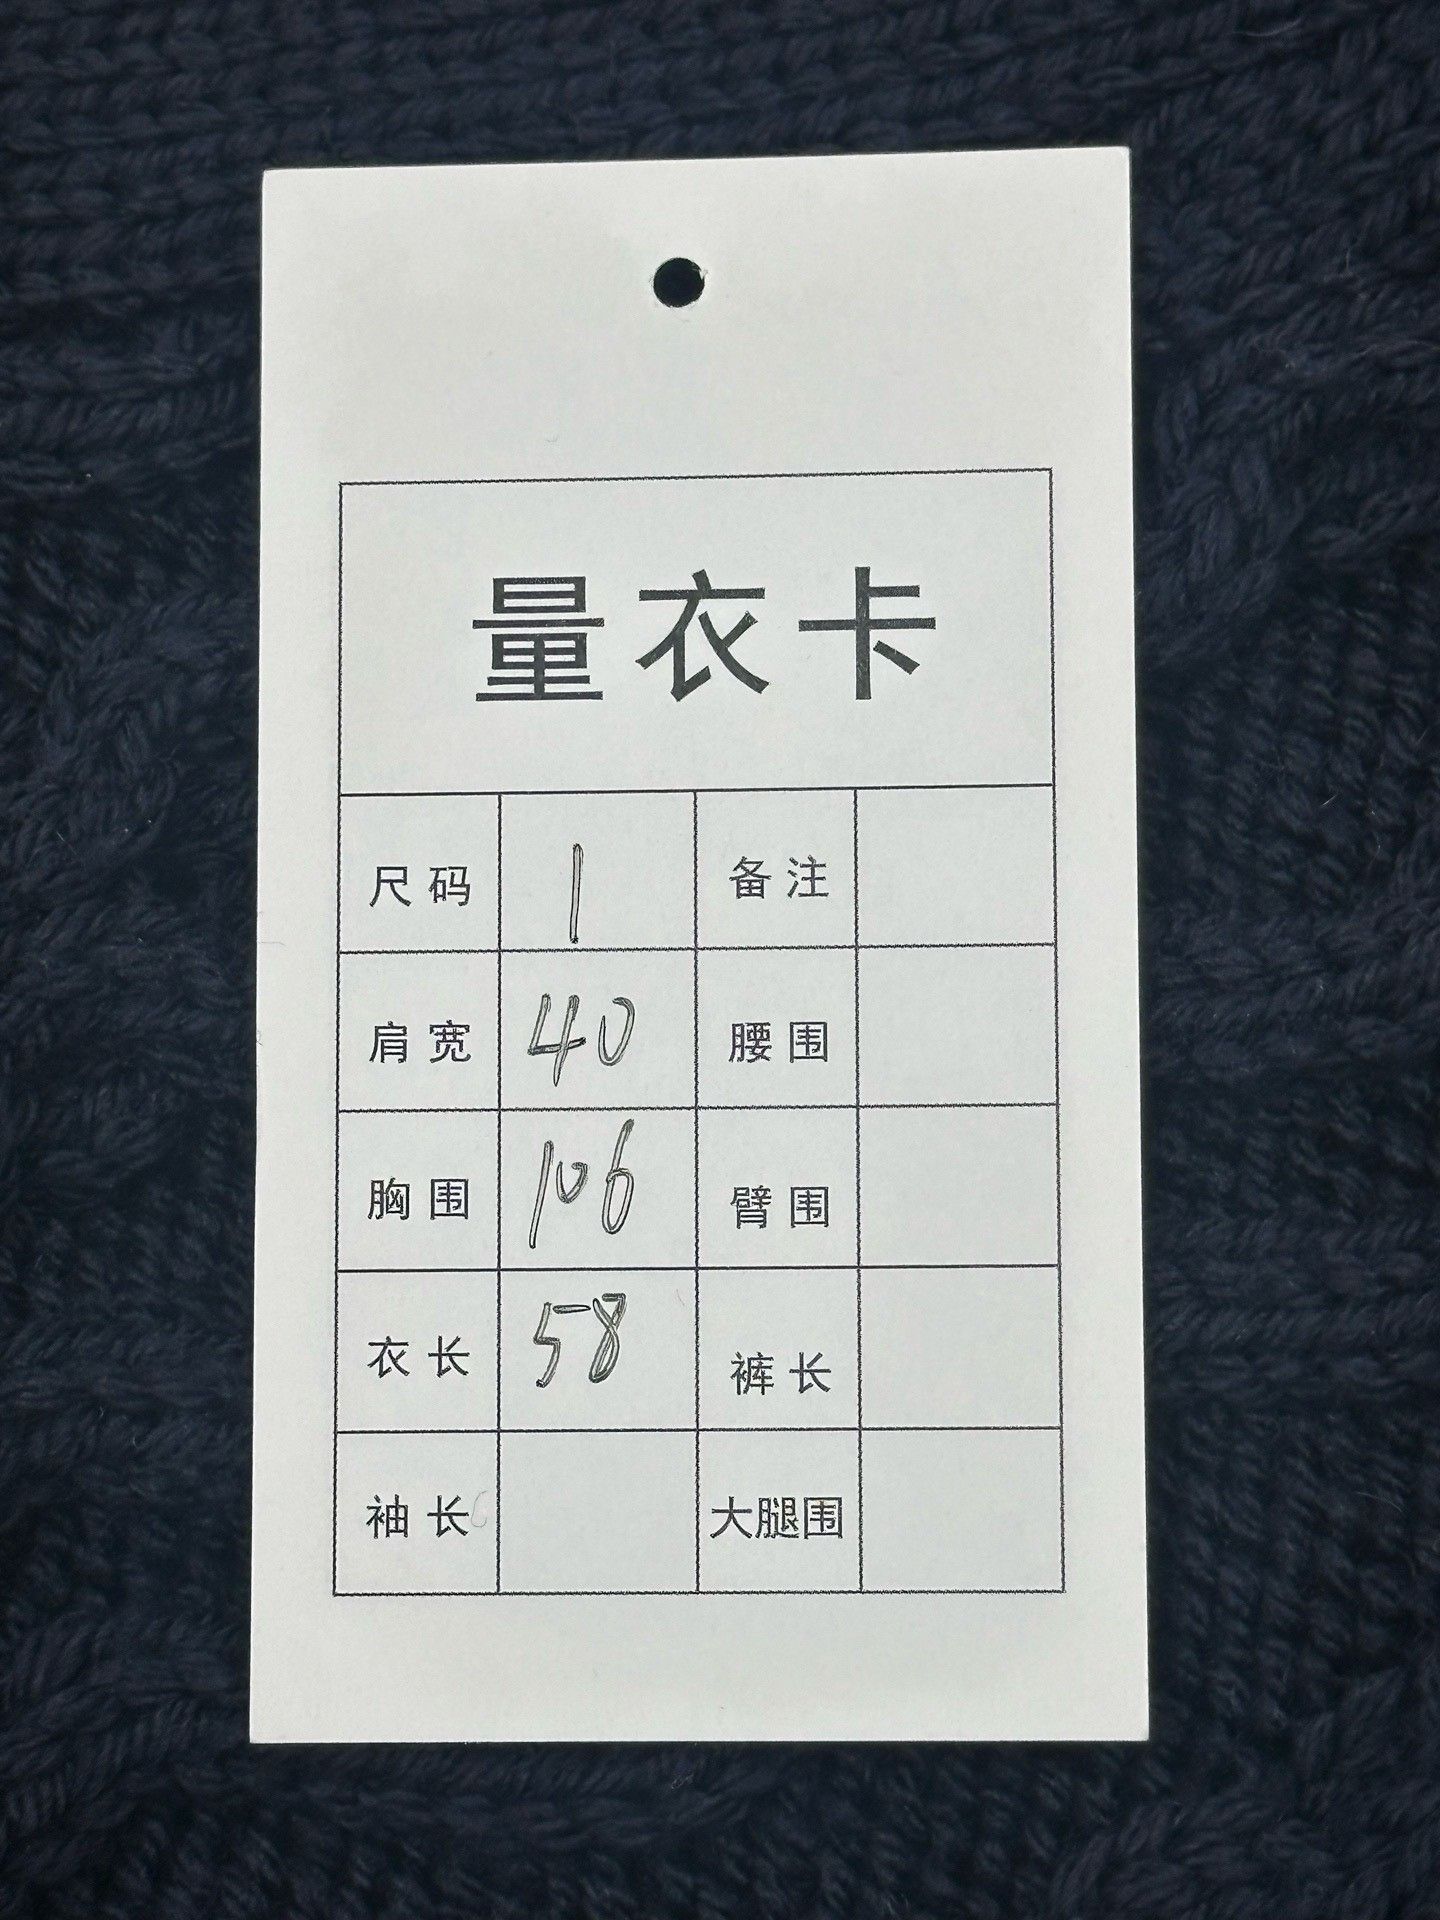 量衣卡
尺码 1 备注
肩宽 40 腰围
胸围 106 臂围
衣长 58 裤长
袖长 大腿围